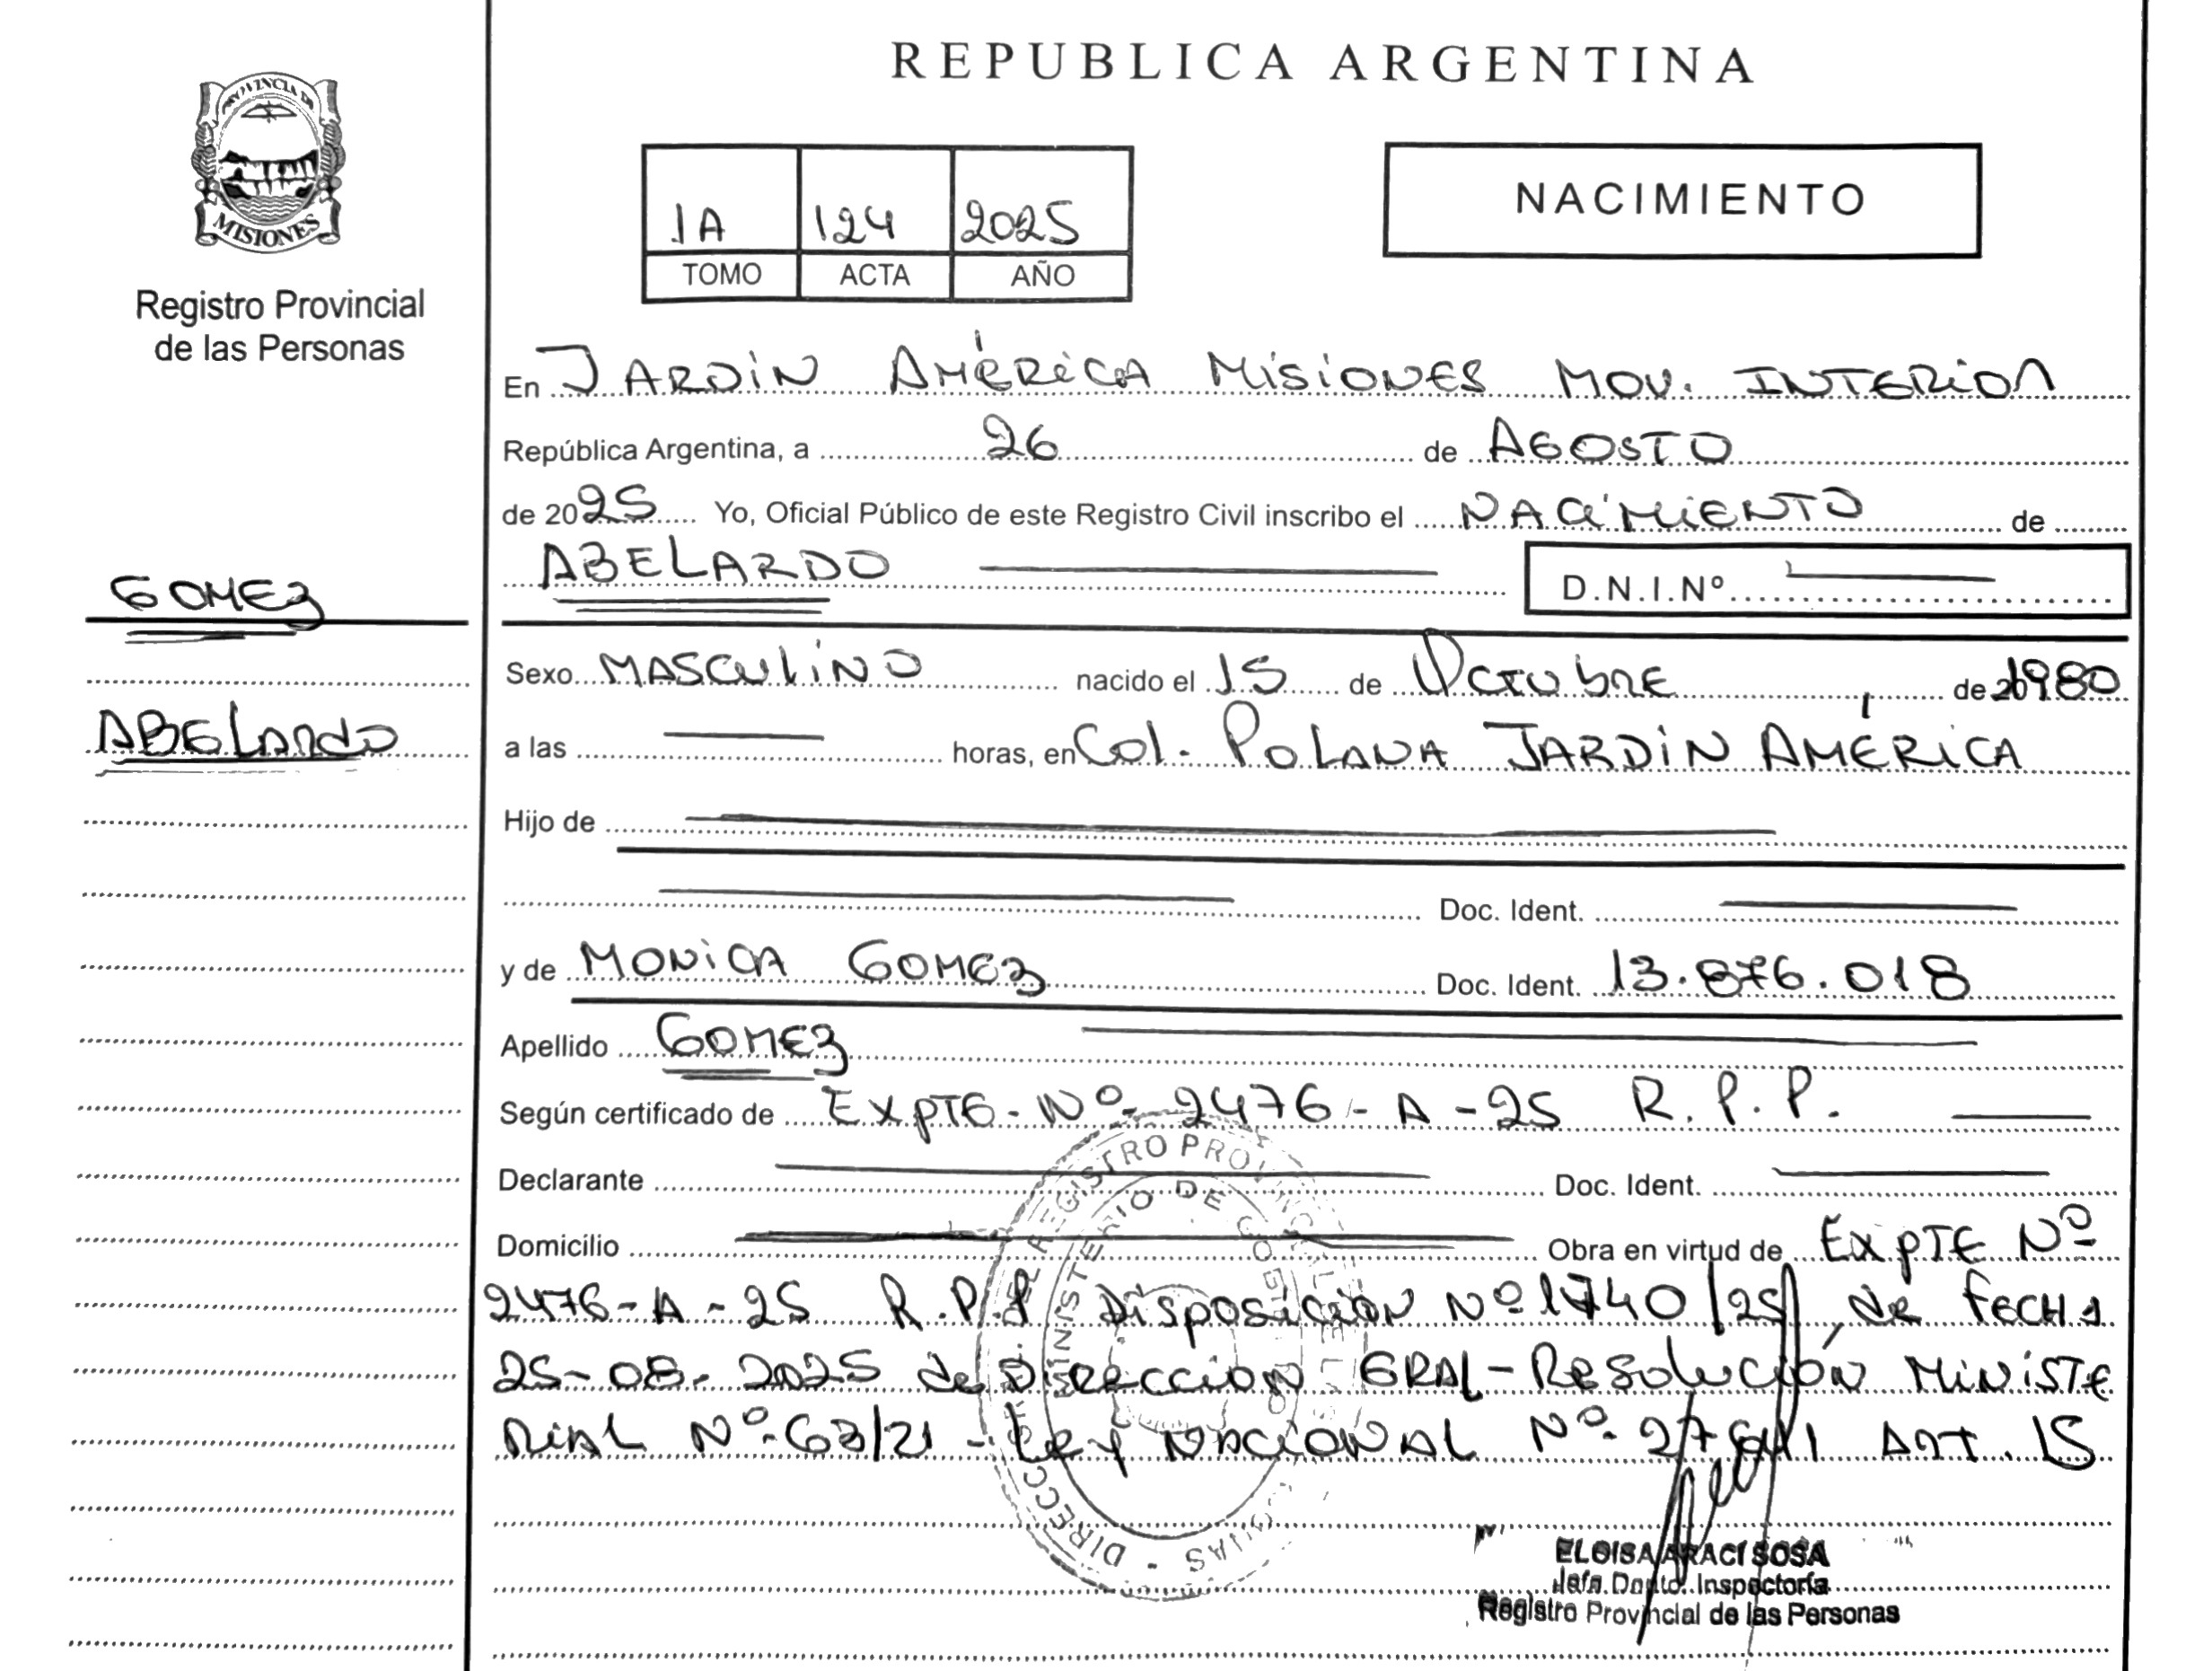 REPUBLICA ARGENTINA
PROVINCIA DE
MISIONES
Registro Provincial
de las Personas
1A 124 2025
TOMO ACTA AÑO
NACIMIENTO
En JARDIN AMÉRICA MISIONES MOV. INTERIOR
República Argentina, a 26 de AGOSTO
de 2025 Yo, Oficial Público de este Registro Civil inscribo el NACIMIENTO de
ABELARDO D.N.I.Nº
GOMEZ
ABELARDO
Sexo MASCULINO nacido el 15 de OCTUBRE de 1980
a las horas, en Col. POLANA JARDIN AMÉRICA
Hijo de
Doc. Ident.
y de MONICA GOMEZ Doc. Ident. 13.876.018
Apellido GOMEZ
Según certificado de EXPTE. Nº 2476-A-25 R.P.P.
Declarante Doc. Ident.
Domicilio Obra en virtud de EXPTE Nº
2476-A-25 R.P.P Disposición Nº 1740/25 de FECHA
25-08-2025 de DIRECCION GRAL-Resolución MINISTE
RIAL Nº 63/21 - LEY NACIONAL Nº 27611 ART. 15
ELOISA ARACI SOSA
Jefa Dpto. Inspectoría
Registro Provincial de las Personas